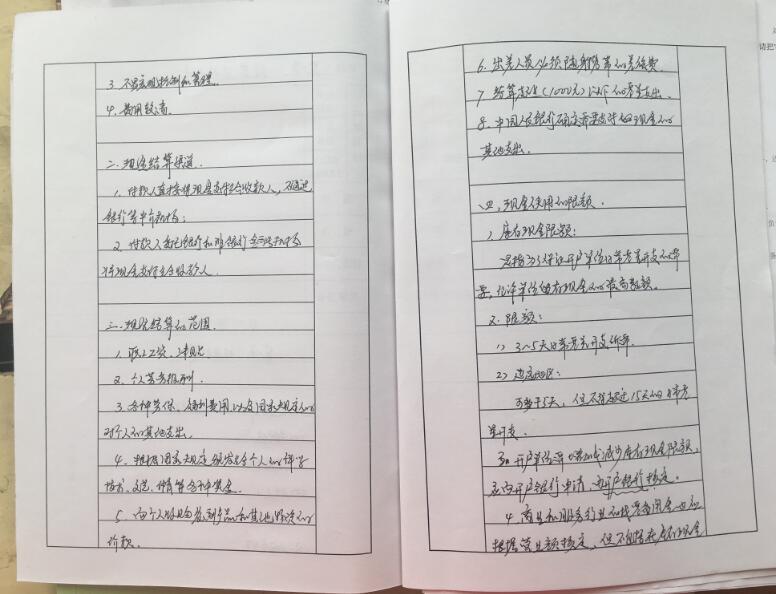 3. 不易宏观控制和管理.
4. 费用较高.
二. 现金结算渠道.
1. 付款人直接将现金支付给收款人, 不通过
银行等中介机构;
2. 付款人委托银行和非银行金融机构
将现金支付给收款人.
三. 现金结算的范围.
1. 职工工资、津贴
2. 个人劳务报酬.
3. 各种劳保、福利费用以及国家规定的
对个人的其他支出.
4. 根据国家规定颁发给个人的科学
技术、文艺、体育等各种奖金.
5. 向个人收购农副产品和其他物资的
价款.
6. 出差人员必须随身携带的差旅费.
7 结算起点(1000元)以下的零星支出.
8. 中国人民银行确定需要支付的现金的
其他支出.
四. 现金使用的限额.
1 库存现金限额:
是指为了保证开户单位日常零星开支的需
要, 允许单位留存现金的最高数额.
2. 限额:
1) 3~5天日常零星开支所需.
2) 边远地区:
可多于5天, 但不得超过15天的日常零
星开支.
3. 开户单位需增加或减少库存现金限额,
应向开户银行申请, 由开户银行核定.
4. 商业和服务行业的找零备用金也应
根据营业额核定, 但不包括在库存现金